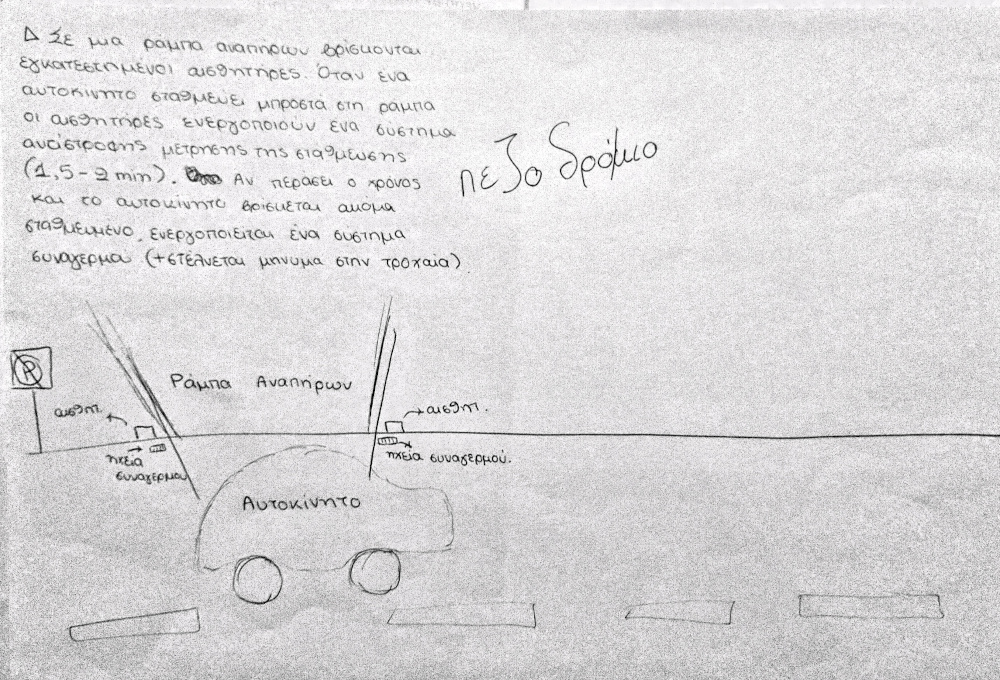 Δ Σε μια ράμπα αναπήρων βρίσκονται
εγκατεστημένοι αισθητήρες. Όταν ένα
αυτοκίνητο σταθμεύει μπροστά στη ράμπα
οι αισθητήρες ενεργοποιούν ένα σύστημα
αντίστροφης μέτρησης της σταθμευσης
(1,5-2 min). Αν περάσει ο χρόνος
και το αυτοκίνητο βρίσκεται ακόμα
σταθμευμένο, ενεργοποιείται ένα συστημα
συναγερμα (+στέλνεται μηνυμα στην τροχαία)
πεζοδρόμιο
P
Ράμπα Αναπήρων
αισθητ.
αισθητ.
ηχεία
συναγερμου
ηχεία συναγερμού.
Αυτοκίνητο